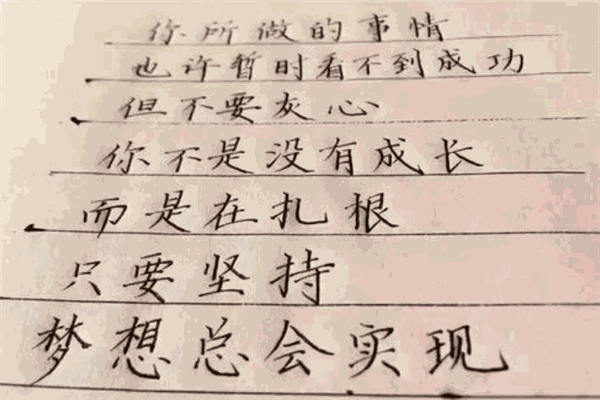 你所做的事情
也许暂时看不到成功
但不要灰心
你不是没有成长
而是在扎根
只要坚持
梦想总会实现